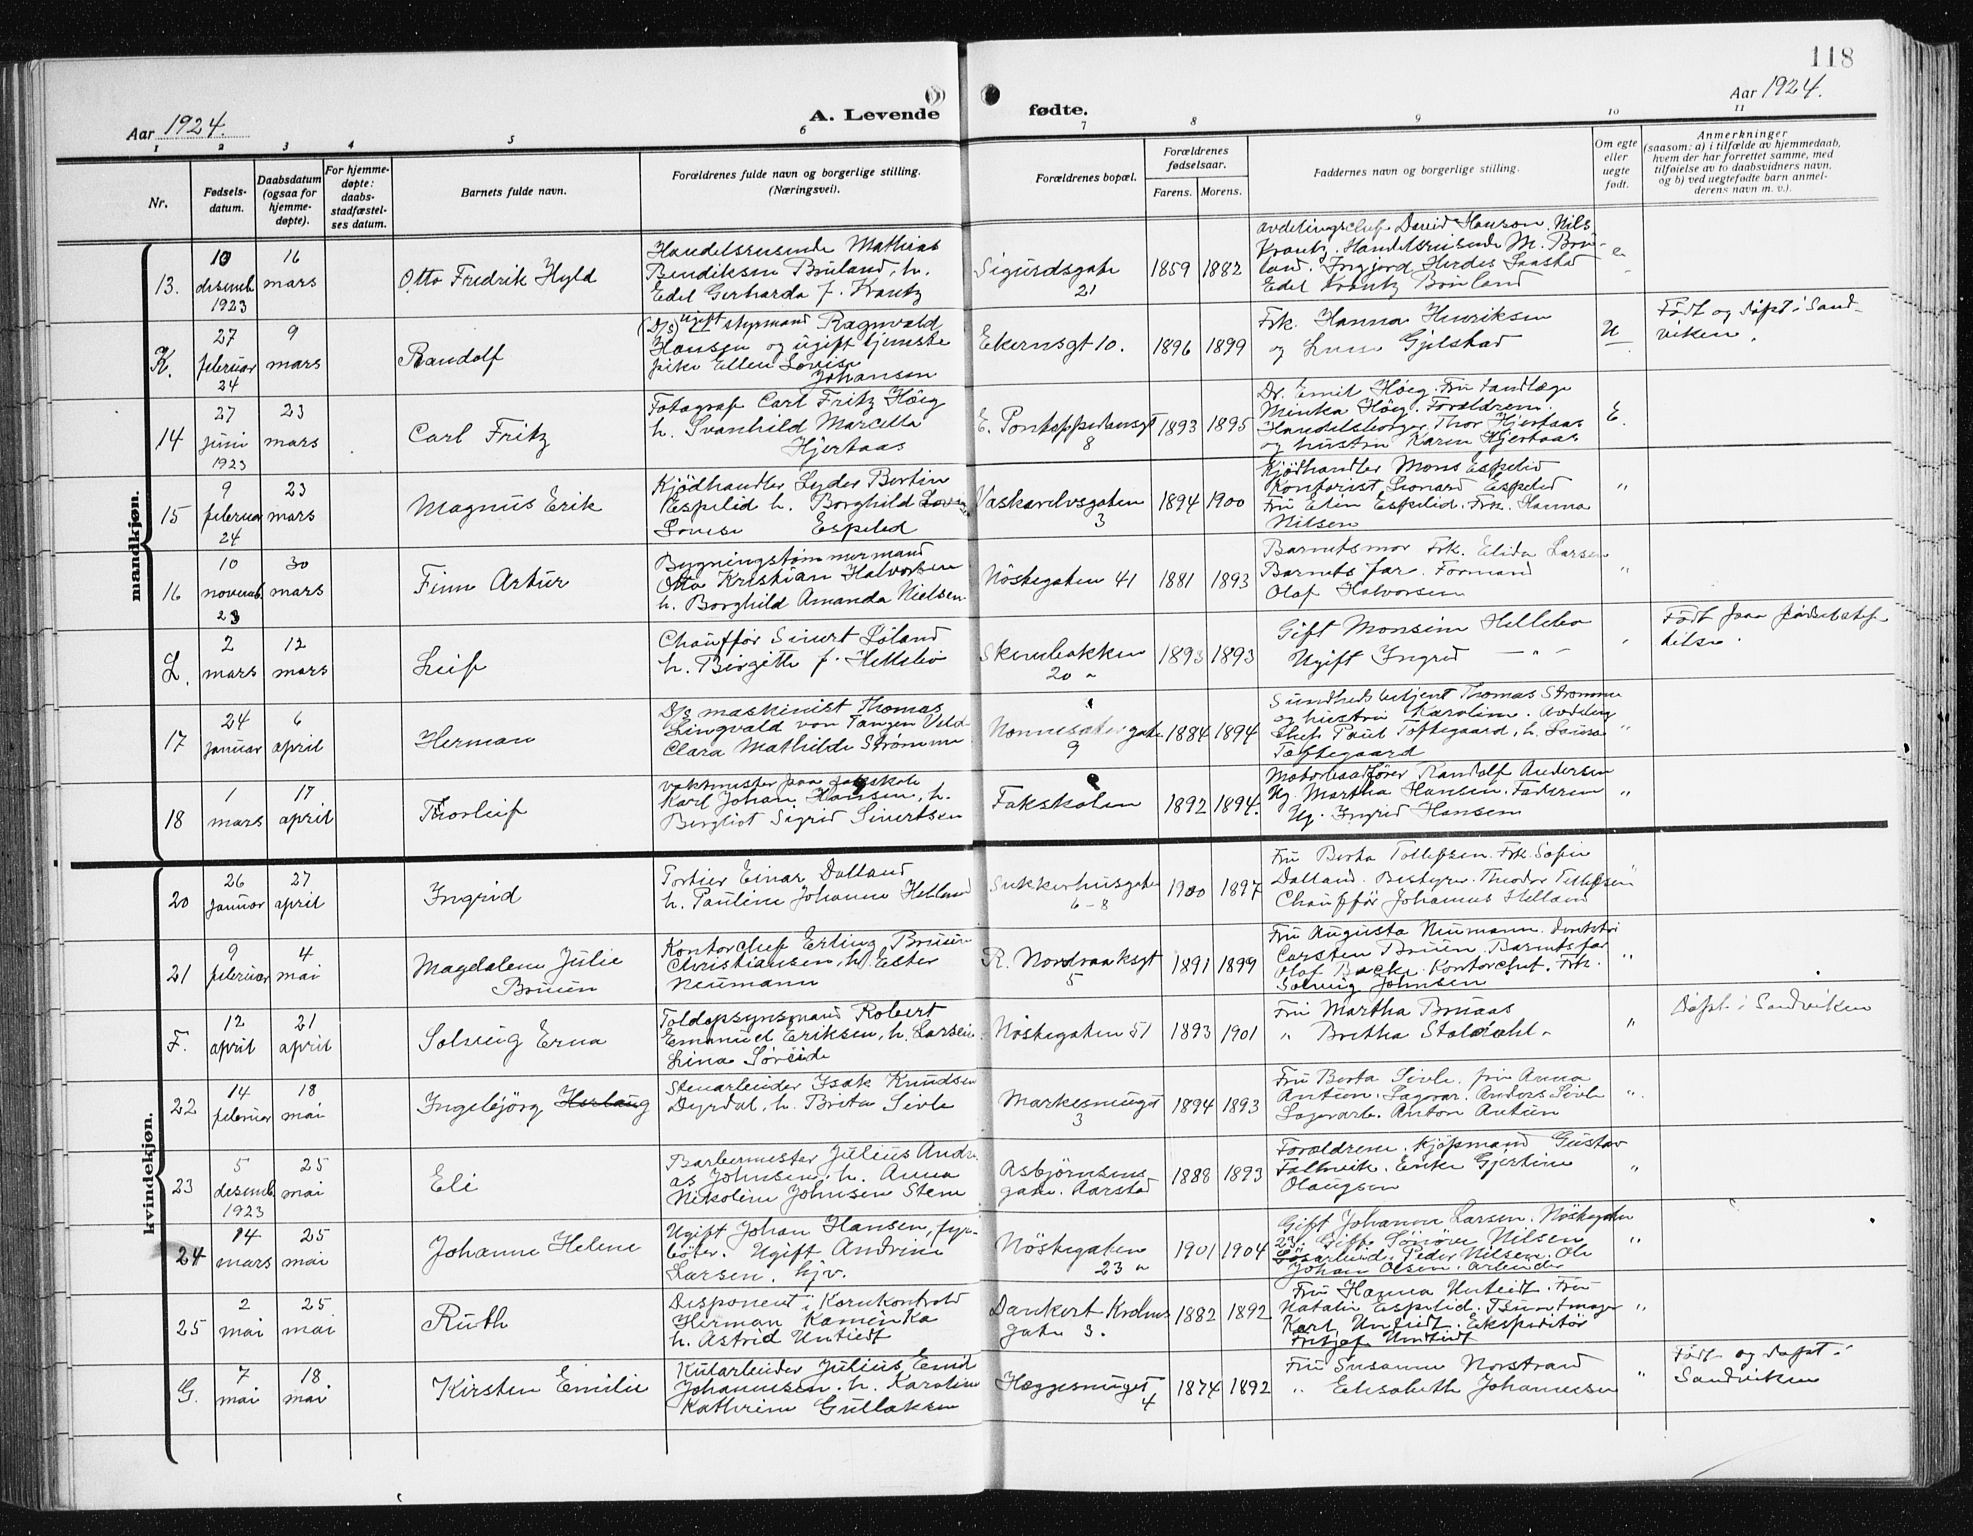 118
Aar 1924.
A. Levende fødte.
Aar 1924.
1 2 3 4 5 6 7 8 9 10 11
Nr.
Fødsels-
datum.
Daabsdatum
(ogsaa for
hjemme-
døpte).
For hjemme-
døpte:
daabs-
stadfæstel-
ses datum.
Barnets fulde navn.
Forældrenes fulde navn og borgerlige stilling.
(Næringsvei).
Forældrenes bopæl.
Forældrenes
fødselsaar.
Farens. Morens.
Faddernes navn og borgerlige stilling.
Om egte
eller
uegte
født.
Anmerkninger
(saasom: a) i tilfælde av hjemmedaab,
hvem der har forrettet samme, med
tilføielse av to daabsvidners navn,
og b) ved uegtefødte barn anmel-
derens navn m. v.).
mandkjøn.
13.
10
desemb.
1923
16
mars
Otto Fredrik Hyld
Handelsreisende Mathias
Bendiksen Bruland, h.
Edel Gerharda f. Krantz
Sigurdsgate
21
1859 1882
avdelingschef David Hanson. Nils
Krantz. Handelsreisende M. Bru-
land. Ingjerd Herdis
Edel Krantz Bruland
e.
K.
27
februar
24
9
mars
Randolf
(D/S) ugift styrmand Ragnvald
Hansen og ugift tjeneste
pike Ellen Lovise
Johansen
Ekernsgt 10.
1896 1899
Frk. Hanna Henriksen
og Gjelstad
U
Født og døpt i Sand-
viken.
14
27
juni
1923
23
mars
Carl Fritz
Fotograf Carl Fritz Höeg
h. Svanhild Marcella
Hjertaas
E. Pontoppidansgt
8
1893 1895
Dr. Emil Höeg. Fru tandlæge
Minka Höeg. Forældrene.
Handelsborger Thor Hjertaas
og hustru Karen Hjertaas
E.
15
9
februar
24
23
mars
Magnus Erik
Kjødhandler Lyder Bertin
Espelid h. Borghild
Lovise Espelid
Vaskerelvsgaten
3
1894 1900
Kjødhandler Mons Espelid
Kontorist Leonard Espelid
Fru Elen Espelid. Frk. Hanna
Nilsen
"
16
10
novemb.
23
30
mars
Finn Artur
Bygningstømmermand
Otto Kristian Halvorsen
h. Borghild Amanda Nielsen
Nöstegaten 41
1881 1893
Barnets mor Frk. Elida Larsen
Barnets far. Formand
Olaf Halvorsen
"
L.
2
mars
12
mars
Leif
Chaufför Sivert Löland
h. Birgitte f. Hellebö
Skivebakken
20 a
1893 1893
Gift Monsine Hellebø
Ugift Ingrid — " —
"
Født paa fødselsstif
telse.
17
24
januar
6
april
Herman
D/S maskinist Thomas
Lingvald von Tangen Veld
Clara Mathilde Strømme
Nonnesætergate
9
1884 1894
Sundhedsbetjent Thomas Strömme
og hustru Karoline. Avdeling
chef Paul Toftegaard, h. Laura
Toftegaard
"
18
1
mars
17
april
Thorleif
vaktmester paa fakskole
Karl Johan Hansen, h.
Bergliot Sigrid Sivertsen
Fakskolen
1892 1894.
Motorbaadfører Randolf Andersen
Ug. Martha Hansen. Faderen
Ug. Ingrid Hansen
"
kvindekjøn.
20
26
januar
27
april
Ingrid
Portier Einar Dalland
h. Pauline Johanne Helland
Sukkerhusgate
6-8
1900 1897
Fru Berta Tollefsen. Frk. Sofie
Dalland. Bestyrer Theodor Tollefsen
Chaufför Johannes Helland
"
21
9
februar
4
mai
Magdalene Julie
Bruun
Kontorchef Erling Bruun
Christiansen, h. Ester
Neumann
R. Nordraaksgt
5
1891 1899
Fru Augusta Neumann. Direktör
Carsten Bruun. Barnets far
Olaf Backe. Kontorchef. Frk.
Solveig Johnsen
"
F.
12
april
21
april
Solveig Erna
Toldopsynsmand Robert
Emanuel Eriksen, h. Larsein
Lina Sörside
Nöstegaten 51
1893 1901
Fru Martha Bruaas
" Bertha Staldahl.
"
Döpt i Sandviken
22
14
februar
18
mai
Ingebjörg Herlaug
Stenarbeider Isak Knudsen
Dyrdal, h. Brita Sivle
Markesmuget
3
1894 1893
Fru Berta Sivle. fru Anna
Antun. Lagerar. Anders Sivle
Lagerarb. Anton Antun
"
23
5
desemb.
1923
25
mai
Eli
Barbermester Julius Andre-
as Johnsen, h. Anna
Nikoline Johnsen Stene
Asbjörnsens
gate. Aarstad
1888 1893
Forældrene. Kjøpmand Gustav
Falkvik. Enke Gjertine
Olaugsen
"
24
14
mars
25
mai
Johanne Helene
Ugift Johan Hansen, fyr-
böter. Ugift Andrine
Larsen. hjv.
Nöstegaten
23 a
1901 1904
Gift Johanne Larsen. Nöstegaten
23, Gift Synöve Nilsen
Lösarbeid. Peder Nilsen. Ole
Johan Olsen. Arbeider
"
25
2
mai
25
mai
Ruth
Disponent i Kornkontrold
Herman Kamenka
h. Astrid Untiedt
Dankert Krohns
gate 3.
1882 1892
Fru Hanna Untiedt. Fru
Natalie Espelid. Buntmager
Karl Untiedt. Ekspeditör
Fritjof Untiedt
"
G.
7
mai
18
mai
Kirsten Emilie
Kularbeider Julius Emil
Johannesen. h. Karoline
Kathrine Gullaksen
Heggesmuget
4
1874 1892
Fru Susanne Norstrand
" Elisabeth Johannesen
"
Født og døpt i
Sandviken